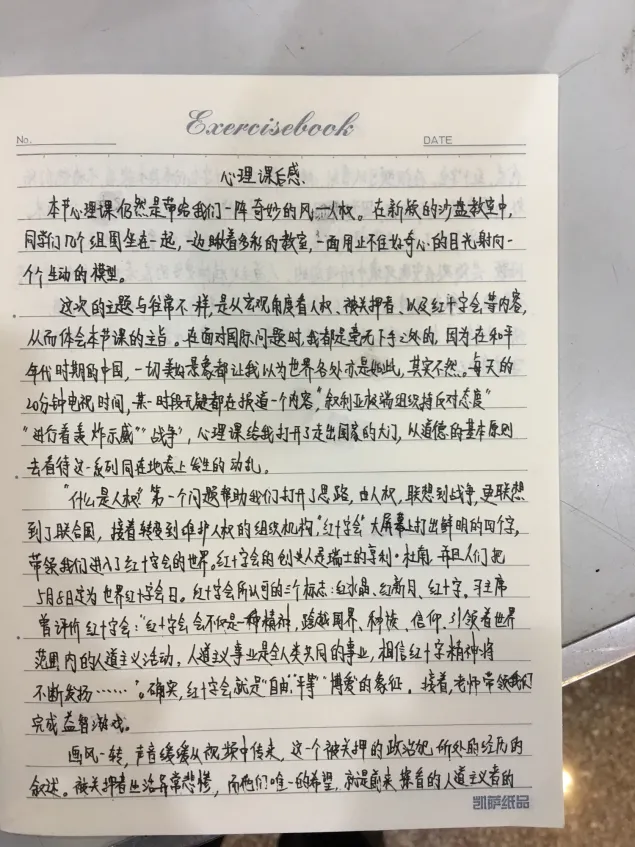 Exercisebook
No.
DATE
心理课后感.
本节心理课仍然是带给我们一阵奇妙的风——人权。在新版的沙盘教室中,
同学们几个组围坐在一起,一边瞅着多彩的教室,一面用止不住好奇心的目光射向一
个个生动的模型。
这次的主题与往常不一样,是从宏观角度看人权、被关押者、以及红十字会等内容,
从而体会本节课的主旨。在面对国际问题时,我都是毫无下手之处的,因为在和平
年代时期的中国,一切美好景象都让我以为世界各处亦是如此,其实不然。每天的
20分钟电视时间,某一时段无疑都在报道一个内容,“叙利亚极端组织持反对态度”
“进行着轰炸示威”“战争”,心理课给我打开了走出国家的大门,从道德的基本原则
去看待这一系列同在地表上发生的动乱。
“什么是人权”第一个问题帮助我们打开了思路,由人权,联想到战争,更联想
到了联合国,接着转移到维护人权的组织机构,“红十字会”大屏幕上打出鲜明的四个字,
带领我们进入了红十字会的世界。红十字会的创始人是瑞士的亨利·杜南,并且人们把
5月8日定为世界红十字会日。红十字会所认可的三个标志:红水晶、红新月、红十字。习主席
曾评价红十字会:“红十字会不仅是一种精神,跨越国界、种族、信仰、引领着世界
范围内的人道主义活动。人道主义事业是全人类共同的事业,相信红十字精神将
不断发扬……”。确实,红十字会就是“自由”“平等”“博爱”的象征。接着,老师带领我们
完成益智游戏。
画风一转,声音缓缓从视频中传来,这一个被关押的政治犯所处的经历的
叙述。被关押者生活异常悲惨,而他们唯一的希望,就是前来探看的人道主义者的
凯萨纸品